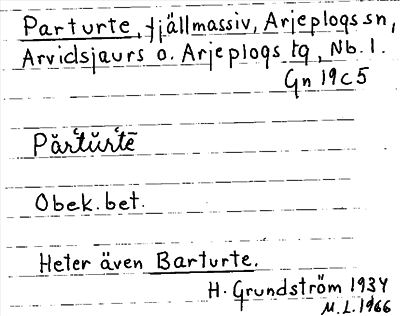 Parturte, fjällmassiv, Arjeplogs sn,
Arvidsjaurs o. Arjeplogs tg, Nb. l.
Gn 19c5
Părtŭrtē
Obek. bet.
Heter även Barturte.
H. Grundström 1934
M.L. 1966